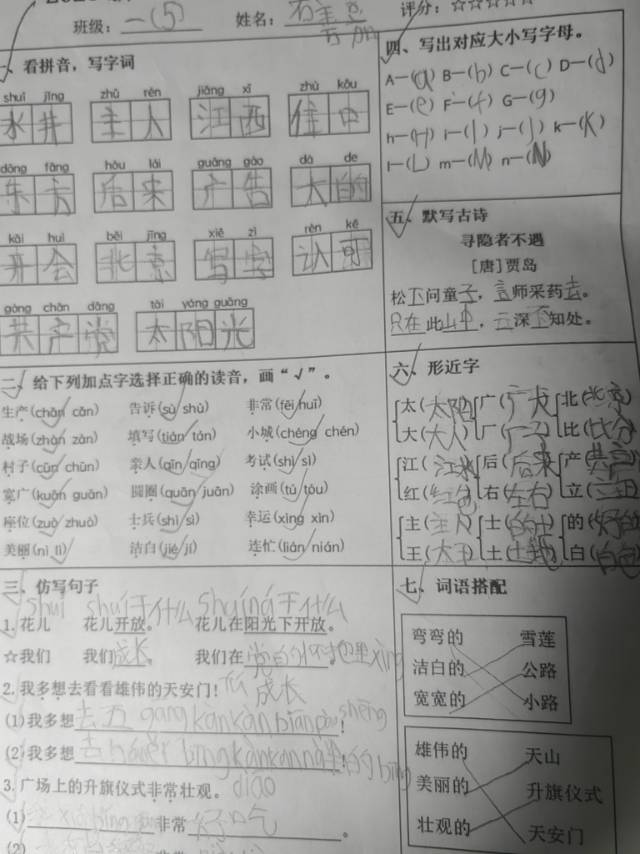 班级：一(5) 姓名： 评分：☆☆☆☆☆
、看拼音，写字词
shuǐ jǐng zhǔ rén jiāng xī zhù kǒu
水井 主人 江西 住
dōng fāng hòu lái guǎng gào dà de
东方 后来 广告 大的
kāi huì běi jīng xiě zì rèn kě
开会 北京 写字 认可
gòng chǎn dǎng tài yáng guāng
共产党 太阳光
二、给下列加点字选择正确的读音，画“√”。
生产(chǎn cǎn) 告诉(sù shù) 非常(fēi huī)
战场(zhàn zàn) 填写(tián tán) 小城(chéng chén)
村子(cūn chūn) 亲人(qīn qīng) 考试(shì sì)
宽广(kuān guān) 圆圈(quān juān) 涂画(tú tóu)
座位(zuò zhuò) 士兵(shì sì) 幸运(xìng xìn)
美丽(nì lì) 洁白(jié jí) 连忙(lián nián)
三、仿写句子
1. 花儿 花儿开放。 花儿在阳光下开放。
☆我们 我们成长。 我们在
成长
2. 我多想去看看雄伟的天安门！
(1)我多想
(2)我多想
3. 广场上的升旗仪式非常壮观。
(1) 非常好口气。
(2)
四、写出对应大小写字母。
A—(a) B—(b) C—(c) D—(d)
E—(e) F—(f) G—(g)
h—(H) i—(I) j—(J) k—(K)
l—(L) m—(M) n—(N)
五、默写古诗
寻隐者不遇
[唐]贾岛
松下问童子，言师采药去。
只在此山中，云深不知处。
六、形近字
太(太阳 广(广大 北(北京)
大(大人) 厂(厂子) 比(比分)
江(江水) 后(后来 产(共产)
红(红包) 右(左右) 立(
主(主人 士( 的(好的)
王(大王) 土(土地) 白(白色)
七、词语搭配
弯弯的 雪莲
洁白的 公路
宽宽的 小路
雄伟的 天山
美丽的 升旗仪式
壮观的 天安门